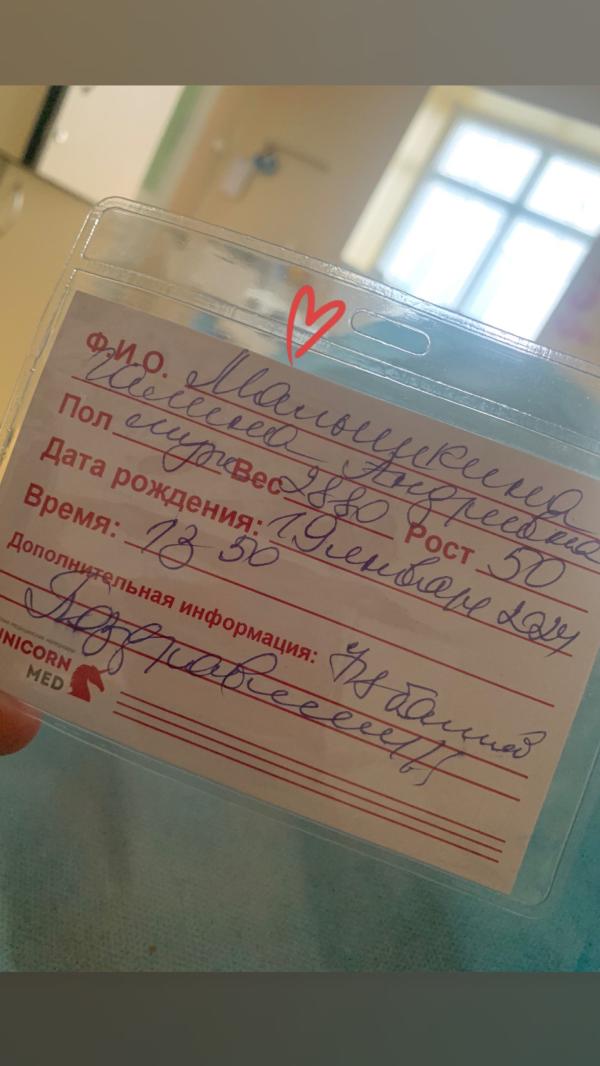 Ф.И.О. Малышкина
Галина Андреевна
Пол Вес 2880 Рост 50
Дата рождения: 19 января 2024
Время: 13 50
Дополнительная информация: 7/8 баллов
Поздравляем!!!
UNICORN
MED